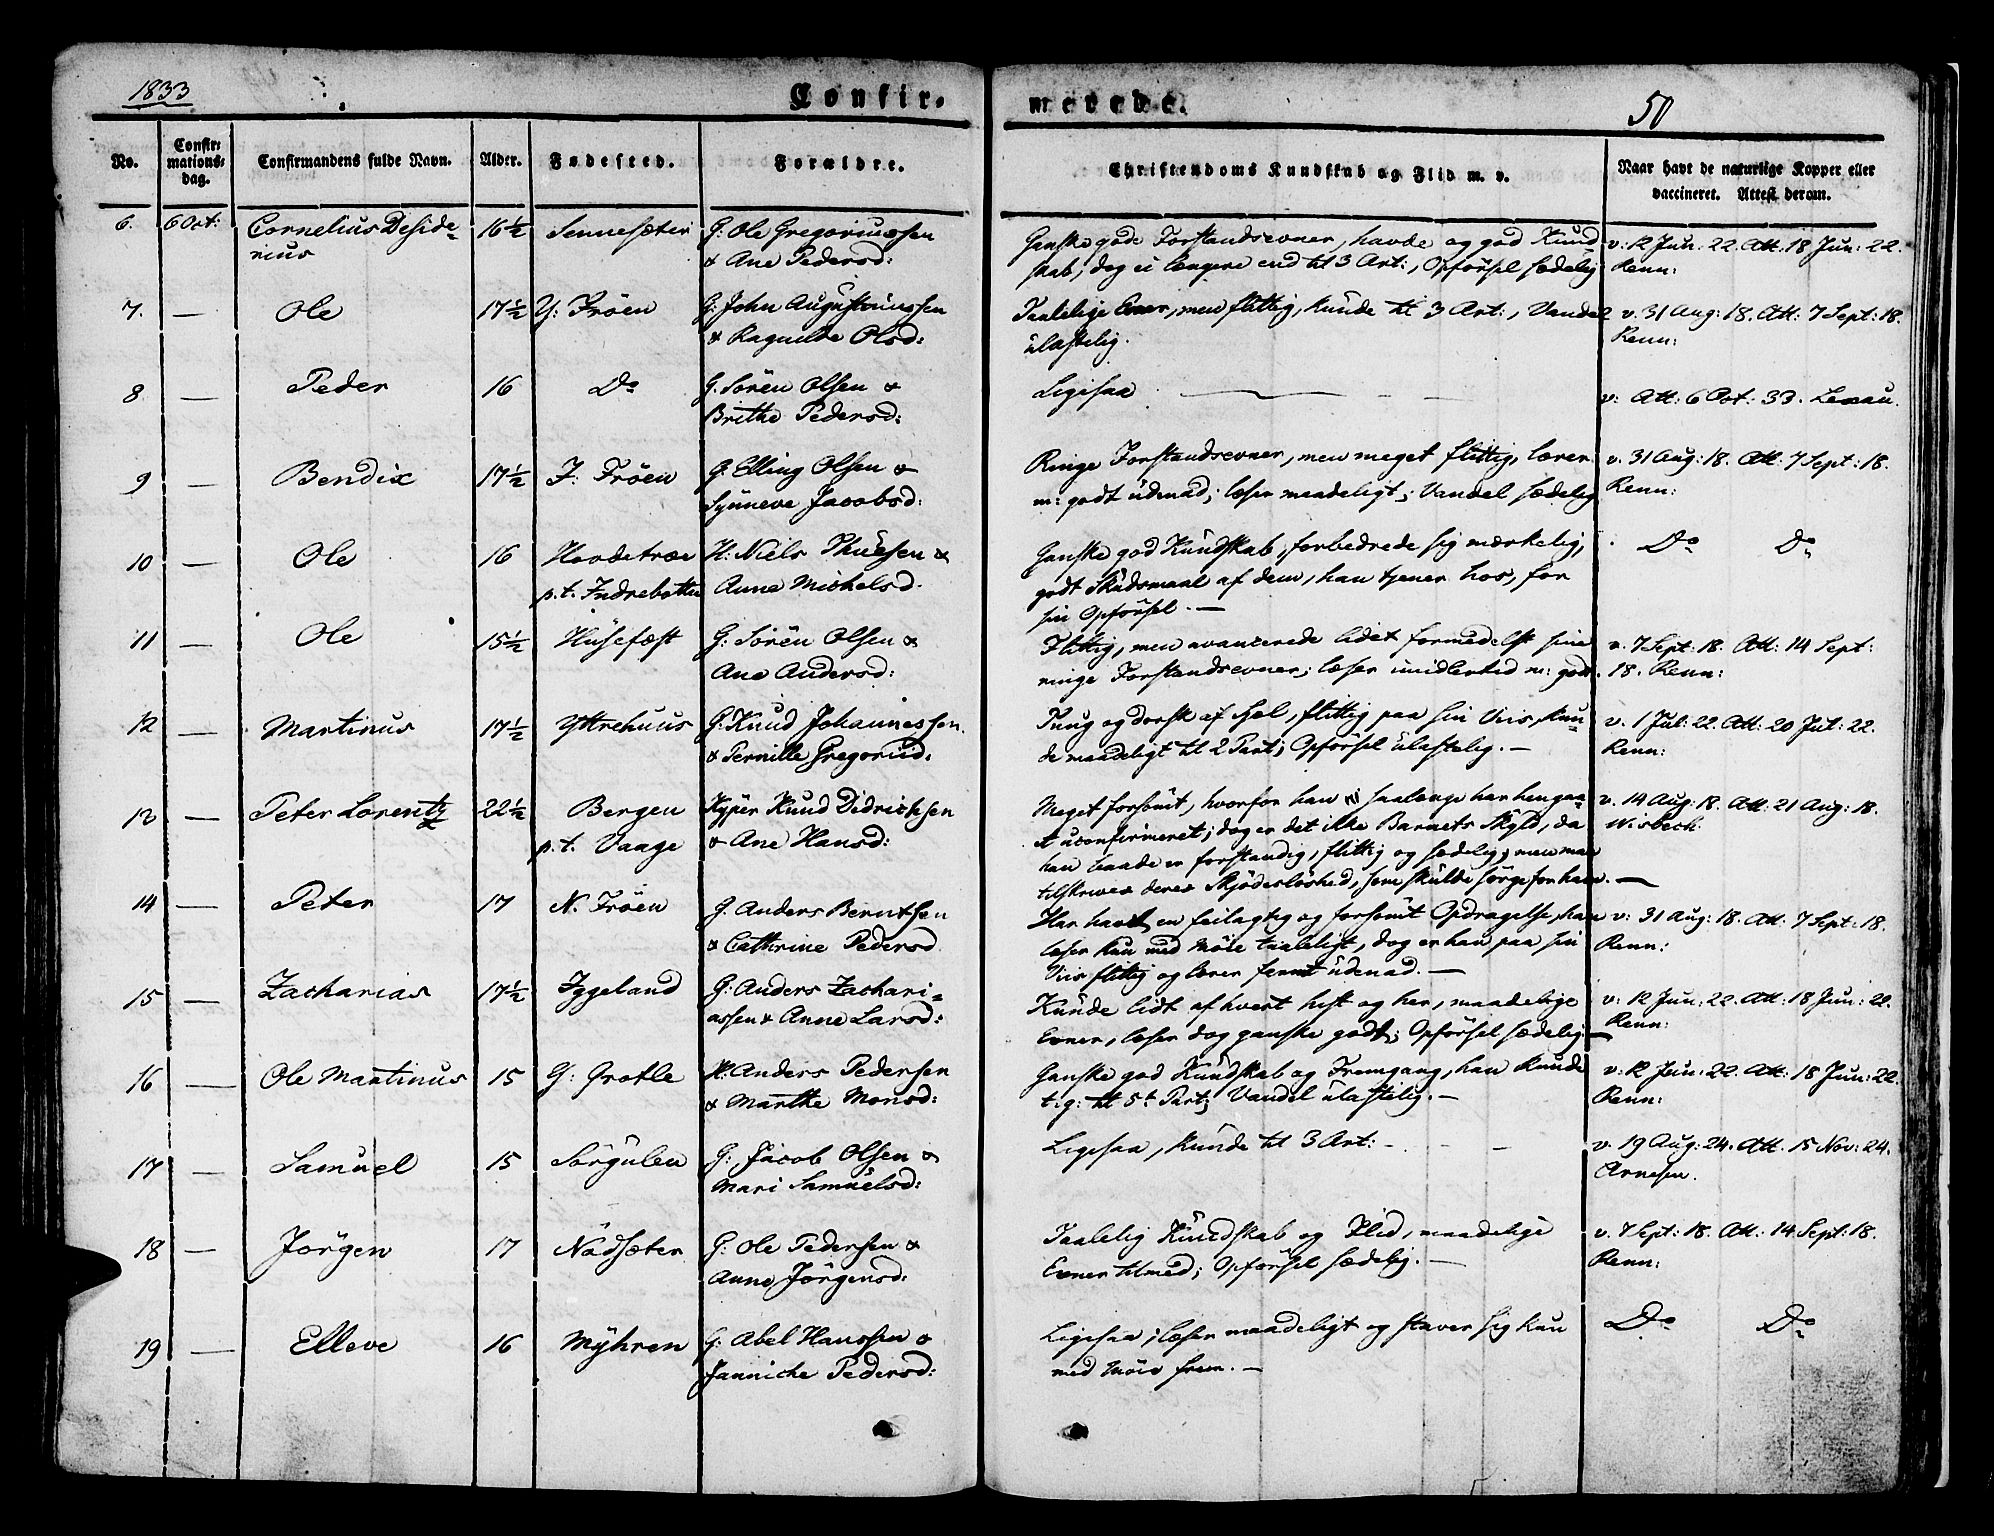 1833
Confir-
merede.
50
No.
Confir-
mations-
dag.
Confirmandens fulde Navn.
Alder.
Fødested.
Forældre.
Christendoms Kundskab og Flid m. v.
Naar havt de naturlige Kopper eller
vaccineret. Attest derom.
6. 6 Oct: Cornelius Deside-
rius
16½ Sennesæter G: Ole Gregoriussen
& Ane Pedersd:
Ganske gode Forstandsevner, havde og god Kund-
skab; dog ei længere end til 3 Art:, Opførsel sædelig
v: 12 Jun: 22. Att. 18 Jun: 22.
Renn:
7. — Ole 17½ Y: Frøen G: John Augustinussen
& Ragnilde Olsd:
Taalelige Evner, men flittig, kunde til 3 Art:, Vandel
ulastelig.
v. 31 Aug: 18. Att: 7 Sept: 18.
Renn:
8 — Peder 16 Do G. Søren Olsen &
Brithe Pedersd:
Ligesaa — —
v: Att: 6 Oct: 33. Lexau.
9 — Bendix 17½ I: Frøen G: Elling Olsen &
Synneve Jacobsd:
Ringe Forstandsevner, men meget flittig, lærer
m: godt udenad; læser maadeligt; Vandel sædelig
v. 31 Aug: 18. Att: 7 Sept: 18.
Renn:
10 — Ole 16 Hovdetræe
p.t. Indrebotten
H: Niels Thuesen &
Anne Michelsd.
Ganske god Kundskab, forbedrede sig mærkelig,
godt Skudsmaal af dem, han tjener hos, for
sin Opførsel. —
Do Do
11 — Ole 15½ Husefæst G: Søren Olsen &
Ane Andersd:
Flittig, men avancerede lidet formedelst sine
ringe Forstandsevner; læser imidlertid m: godt.
v. 7 Sept: 18. Att: 14 Sept:
18. Renn:
12 — Martinus 17½ Yttrehuus G: Knud Johannessen
& Pernille Gregorid.
Tung og dorsk af Sjel, flittig paa sin Viis, kun-
de maadeligt til 2 Part; Opførsel ulastelig. —
v. 1 Jul: 22. Att: 20 Jul: 22.
Renn:
13 — Peter Lorentz 22½ Bergen
p.t. Vaage
Kyper Knud Didrichsen
& Ane Hansd:
Meget forsømt, hvorfor han saalenge har hengaa-
et uconfirmeret; dog er det ikke Barnets Skyld, da
han baade er forstandig, flittig og sædelig; men maa
tilskrives deres Skjødesløshed, som skulde sørge for ham. —
v. 14 Aug: 18. Att: 21 Aug: 18.
Wisbech.
14 — Peter 17 N. Frøen G. Anders Berntsen
& Cathrine Pedersd.
Har havt en feilagtig og forsømt Opdragelse, han
læser kun med Møie taaleligt, dog er han paa sin
Viis flittig og lærer temt udenad. —
v: 31 Aug: 18. Att: 7 Sept: 18.
Renn:
15 — Zacharias 17½ Iggeland G: Anders Zachari-
assen & Anne Larsd:
Kunde lidt af hvert hist og her, maadelige
Evner, læser dog ganske godt; Opførsel sædelig —
v: 12 Jun: 22. Att: 18 Jun: 22.
Renn:
16 — Ole Martinus 15 G: Grotle H: Anders Pedersen
& Marthe Monsd:
Ganske god Kundskab og Fremgang, han kunde
t.g: til 5t Part; Vandel ulastelig. —
v: 12 Jun: 22. Att: 18 Jun: 22.
Renn:
17 — Samuel 15 Sørgulen G: Jacob Olsen &
Mari Samuelsd:
Ligesaa, kunde til 3 Art: - - -
v. 19 Aug: 24. Att. 15 Nov: 24.
Arnesen.
18 — Jørgen 17 Nødsæter G: Ole Pedersen &
Anne Jørgensd:
Taalelig Kundskab og Flid, maadelige
Evner tilmed; Opførsel sædelig. —
v. 7 Sept: 18. Att: 14 Sept: 18.
Renn:
19 — Elleve 16 Myhren G: Abel Hanssen &
Janniche Pedersd:
Ligesaa; læser maadeligt og staver sig kun
med Møie frem. —
Do Do